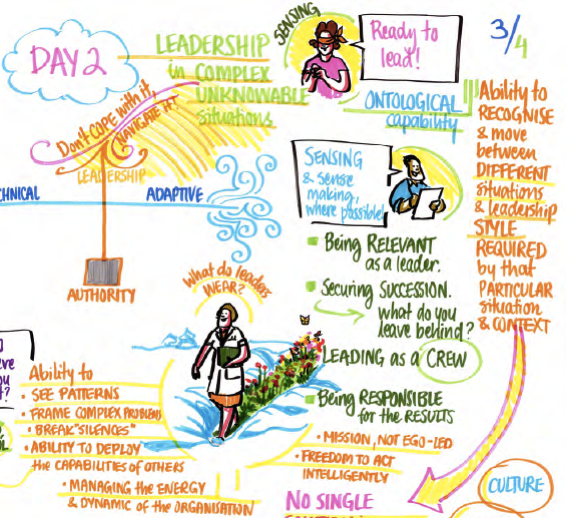 DAY 2
LEADERSHIP
in COMPLEX
UNKNOWABLE
situations
SENSING
Ready to
lead!
3/4
ONTOLOGICAL
capability
Ability to
RECOGNISE
& move
between
DIFFERENT
situations
& leadership
STYLE
REQUIRED
by that
PARTICULAR
situation
& CONTEXT
Don't COPE with it,
NAVIGATE IT
LEADERSHIP
HNICAL
ADAPTIVE
AUTHORITY
SENSING
& sense
making,
where possible!
Being RELEVANT
as a leader.
Securing SUCCESSION.
what do you
leave behind?
LEADING as a CREW
Being RESPONSIBLE
for the RESULTS
• MISSION, NOT EGO-LED
• FREEDOM TO ACT
INTELLIGENTLY
NO SINGLE
CULTURE
What do leaders
WEAR?
Ability to
• SEE PATTERNS
• FRAME COMPLEX PROBLEMS
• BREAK "SILENCES"
• ABILITY TO DEPLOY
the CAPABILITIES OF OTHERS
• MANAGING the ENERGY
& DYNAMIC OF the ORGANISATION